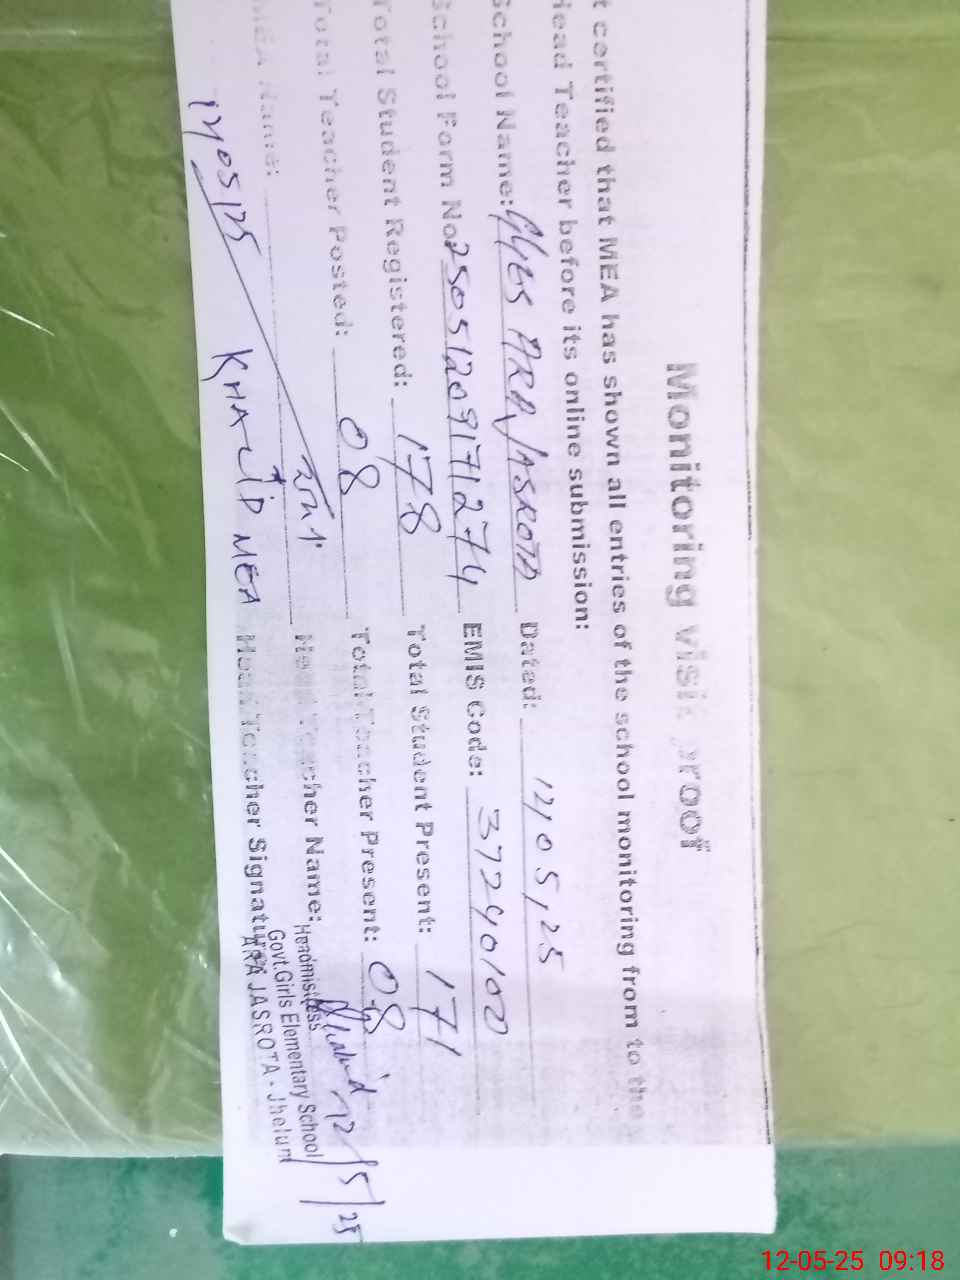 Monitoring visit proof
t certified that MEA has shown all entries of the school monitoring from to the
Head Teacher before its online submission:
School Name: GGES ARA JASROTA Dated: 12/05/25
School Form No: 25051209171274 EMIS Code: 37240100
Total Student Registered: 178 Total Student Present: 171
Total Teacher Posted: 08 Total Teacher Present: 08
MEA Name: Head Teacher Name:
KHALID MEA Head Teacher Signature
12/5/25
Headmistress
Govt.Girls Elementary School
ARA JASROTA - Jhelum
12-05-25 09:18